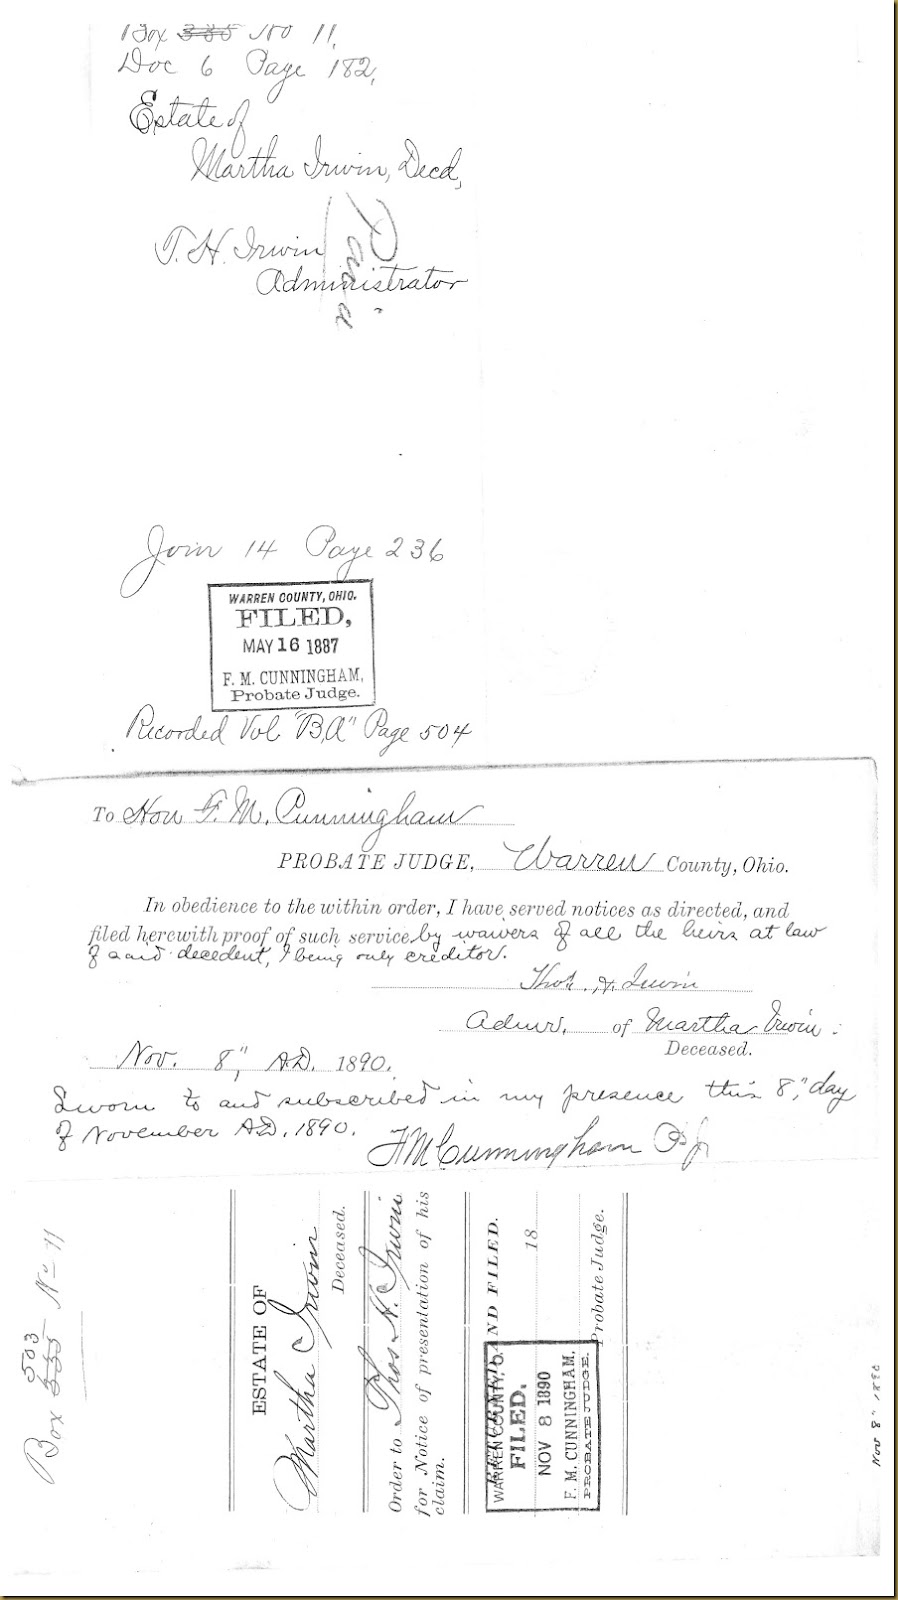 Box 335 No 11,
Doc 6 Page 182,
Estate of
Martha Irwin, Decd,
T. H. Irwin
Administrator
Paid
Join 14 Page 236
WARREN COUNTY, OHIO.
FILED,
MAY 16 1887
F. M. CUNNINGHAM,
Probate Judge.
Recorded Vol "B,A" Page 504
To Hon F. M. Cunningham
PROBATE JUDGE, Warren County, Ohio.
In obedience to the within order, I have served notices as directed, and
filed herewith proof of such service by waivers of all the heirs at law
of said decedent, I being only creditor.
Thos. H. Irwin
Admr. of Martha Irwin
Deceased.
Nov. 8", A.D. 1890.
Sworn to and subscribed in my presence this 8" day
of November A.D. 1890.
F M Cunningham P J
Box 503 335 No 11
ESTATE OF
Martha Irwin
Deceased.
Order to Thos. H. Irwin
for Notice of presentation of his
claim.
RETURNED AND FILED.
18
Probate Judge.
WARREN COUNTY, O.
FILED.
NOV 8 1890
F. M. CUNNINGHAM,
PROBATE JUDGE.
Nov 8" 1890